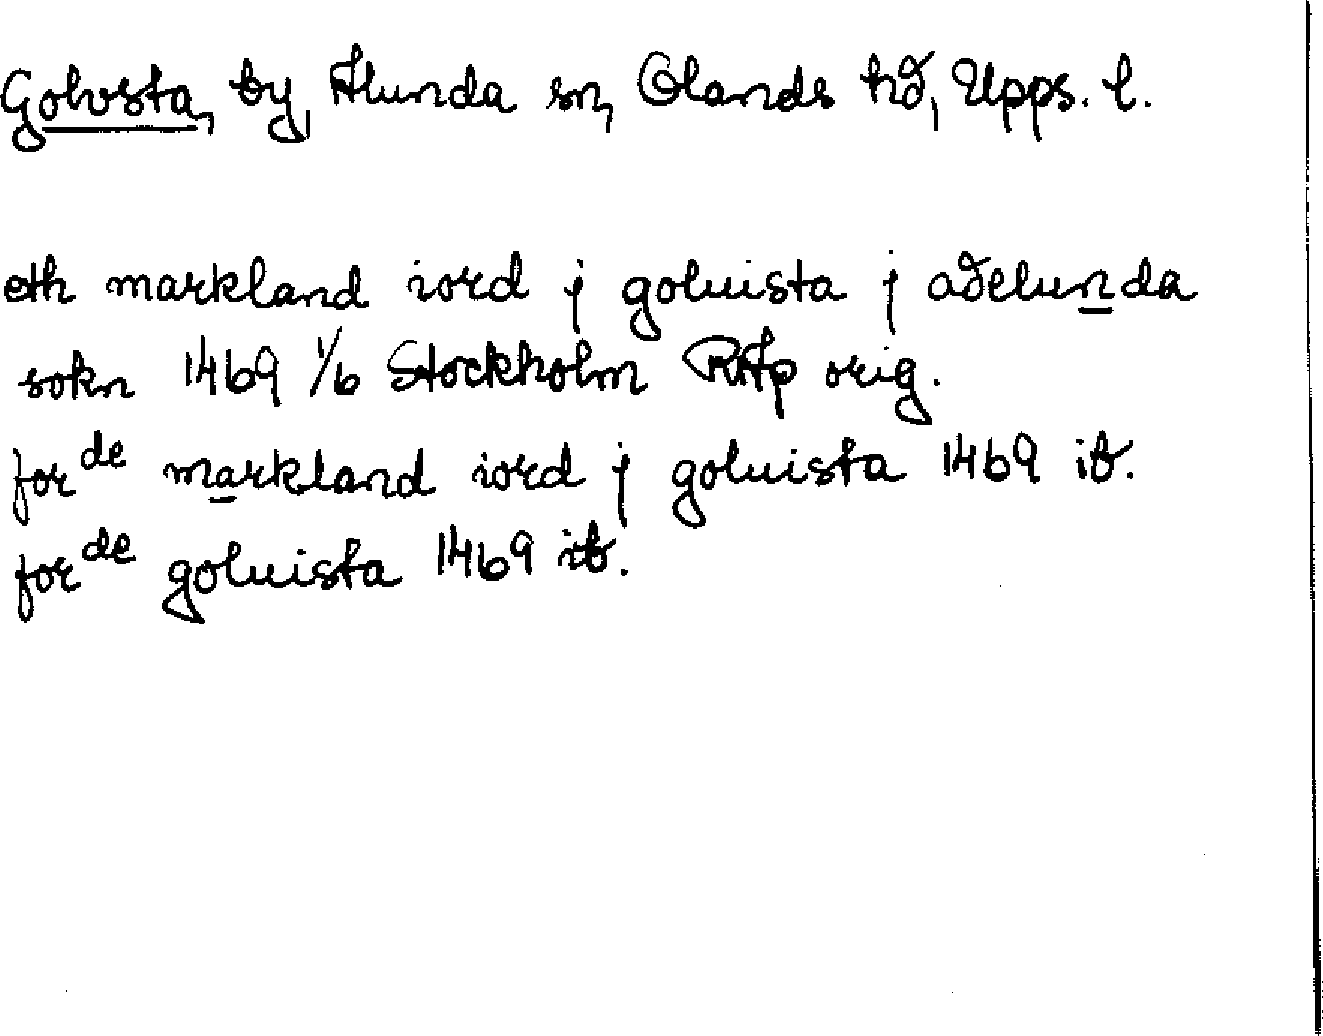 Golvsta, by, Alunda sn, Olands hd, Upps. l.
eth markland iord j goluista j adelunda
sokn 1469 1/6 Stockholm RAp orig.
for de markland iord j goluista 1469 ib.
for de goluista 1469 ib.